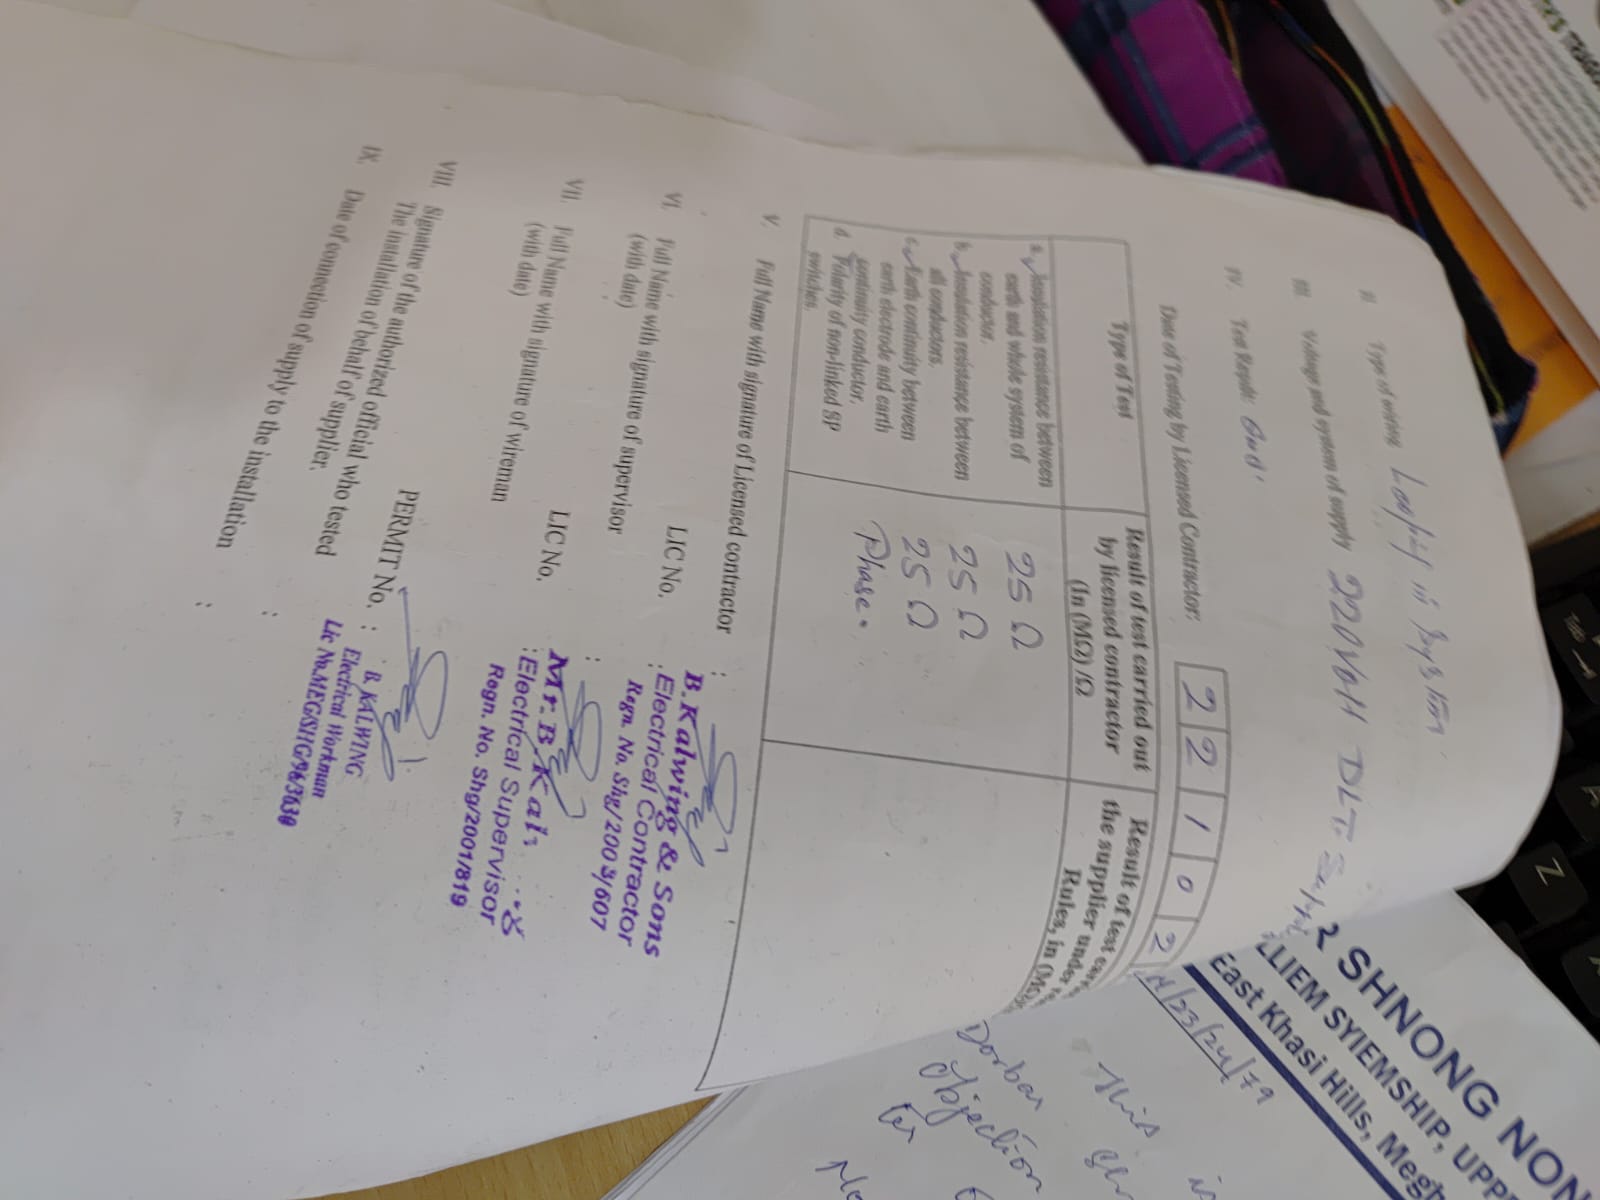 II. Type of wiring
III. Voltage and system of supply 220 Volt
IV. Test Result: Good.
Date of Testing by Licensed Contractor: 2 2 1 0 2
Type of Test
Result of test carried out
by licensed contractor
(In (MΩ) /Ω
Result of test
the supplier under
Rules, in (MΩ
a. Insulation resistance between
earth and whole system of
conductor.
25 Ω
b. Insulation resistance between
all conductors.
25 Ω
c. Earth continuity between
earth electrode and earth
continuity conductor.
25 Ω
d. Polarity of non-linked SP
switches.
Phase.
V. Full Name with signature of Licensed contractor :
B. Kalwing & Sons
LIC No. : Electrical Contractor
Regn. No. Shg/2003/607
VI. Full Name with signature of supervisor :
(with date)
Mr. B. Kal
LIC No. : Electrical Supervisor
Regn. No. Shg/2001/819
VII. Full Name with signature of wireman
(with date)
PERMIT No. : B. KALWING
Electrical Workman
Lic No.MEG/SHG/96/3630
VIII. Signature of the authorized official who tested
The installation of behalf of supplier. :
IX. Date of connection of supply to the installation :
R SHNONG NON
LLIEM SYIEMSHIP, UPP
East Khasi Hills, Megh
/23/24/79
This is
Dorbar
Objection